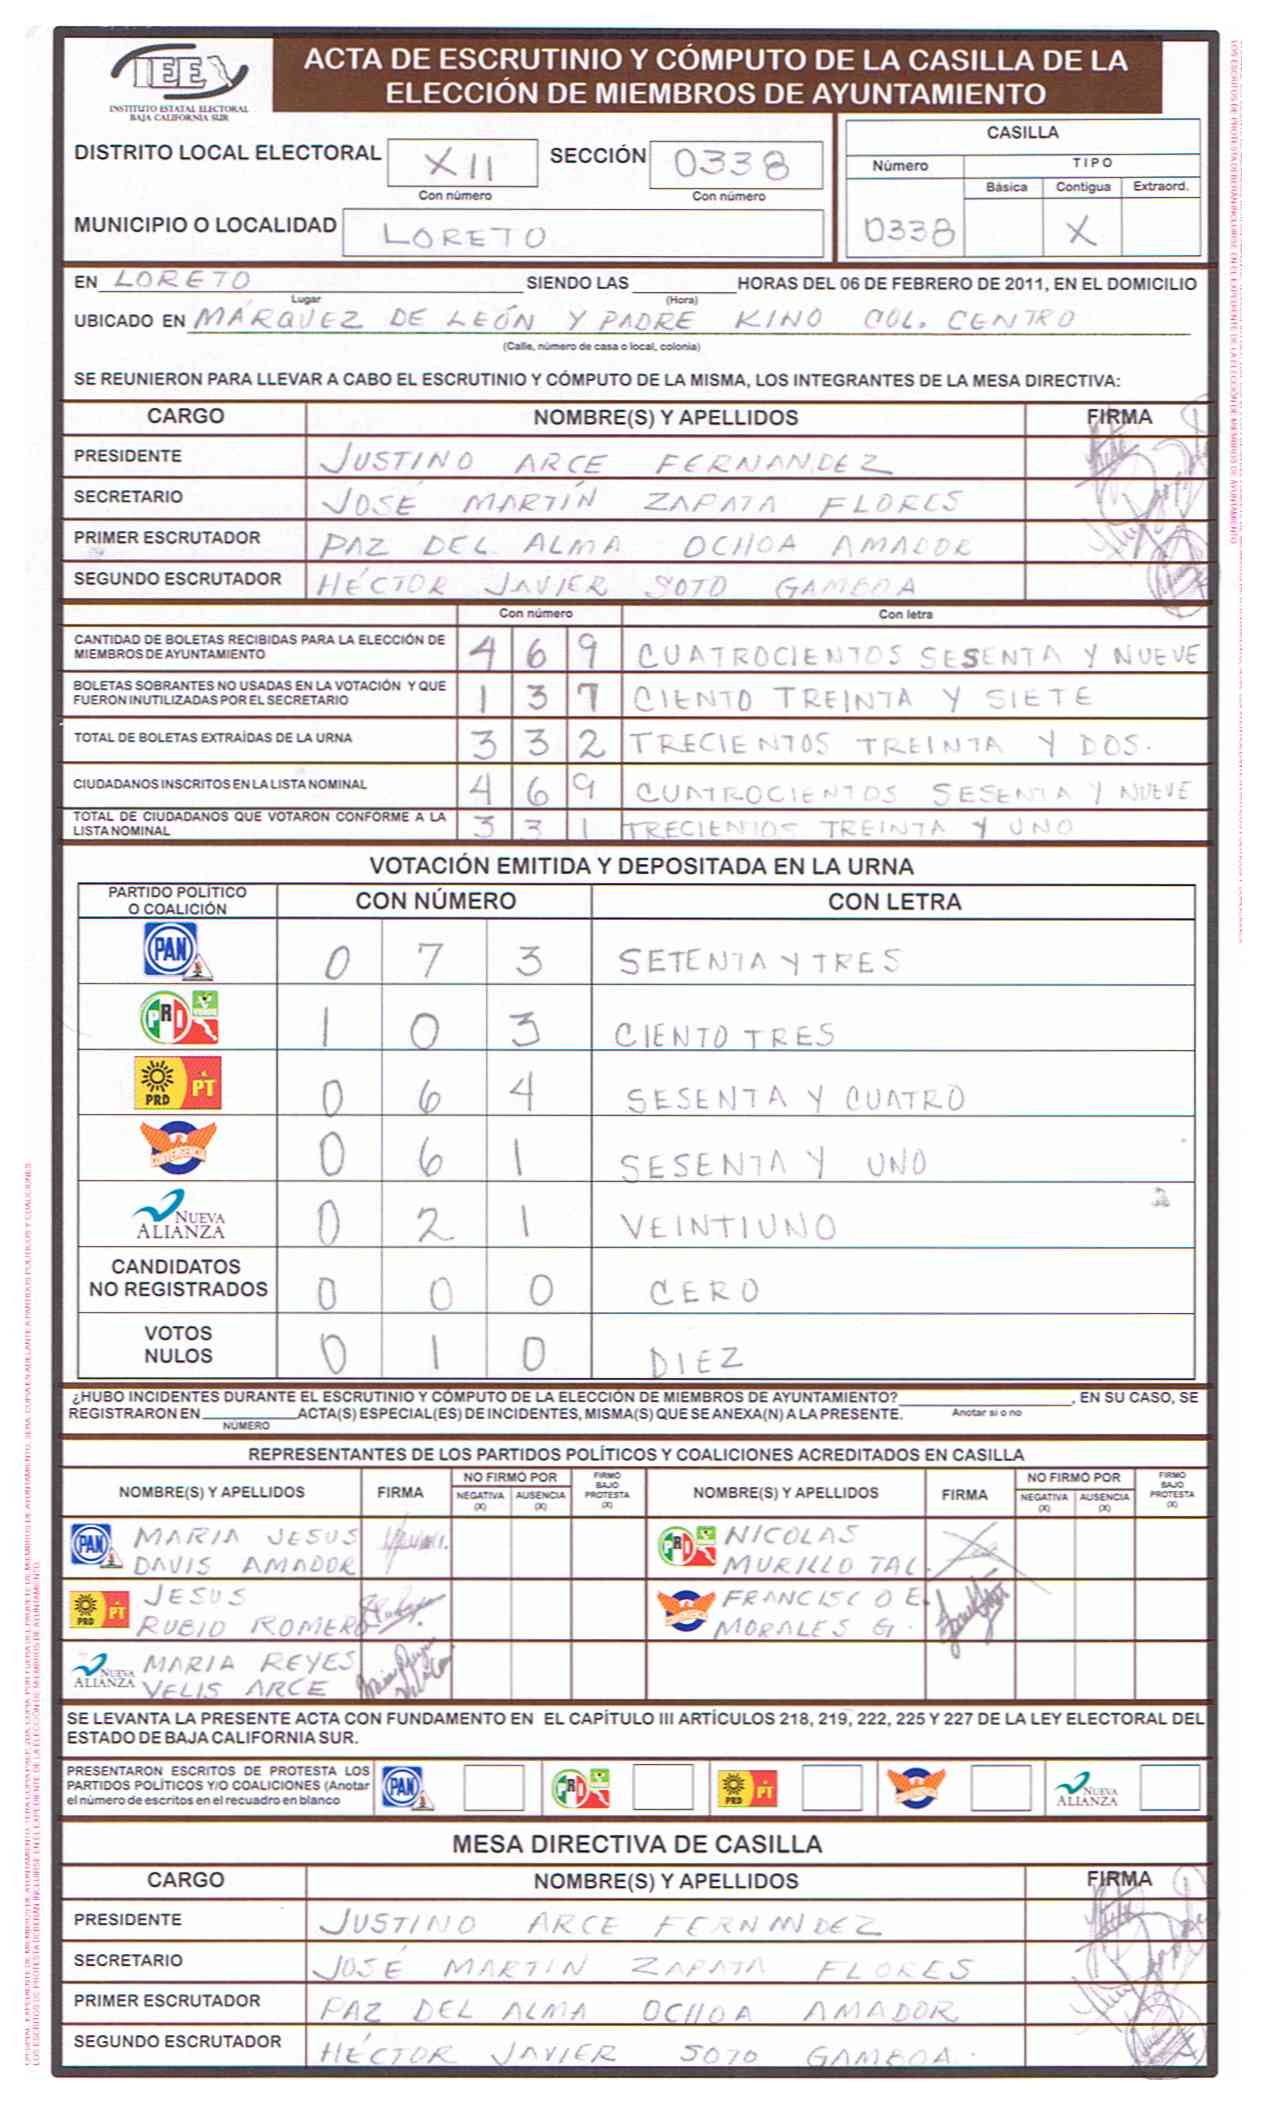 IEE
INSTITUTO ESTATAL ELECTORAL
BAJA CALIFORNIA SUR
ACTA DE ESCRUTINIO Y CÓMPUTO DE LA CASILLA DE LA
ELECCIÓN DE MIEMBROS DE AYUNTAMIENTO
DISTRITO LOCAL ELECTORAL XII SECCIÓN 0338
Con número Con número
MUNICIPIO O LOCALIDAD LORETO
CASILLA
Número TIPO
Básica Contigua Extraord.
0338 X
EN LORETO SIENDO LAS HORAS DEL 06 DE FEBRERO DE 2011, EN EL DOMICILIO
Lugar (Hora)
UBICADO EN MÁRQUEZ DE LEÓN Y PADRE KINO COL. CENTRO
(Calle, número de casa o local, colonia)
SE REUNIERON PARA LLEVAR A CABO EL ESCRUTINIO Y CÓMPUTO DE LA MISMA, LOS INTEGRANTES DE LA MESA DIRECTIVA:
CARGO NOMBRE(S) Y APELLIDOS FIRMA
PRESIDENTE JUSTINO ARCE FERNANDEZ
SECRETARIO JOSÉ MARTÍN ZAPATA FLORES
PRIMER ESCRUTADOR PAZ DEL ALMA OCHOA AMADOR
SEGUNDO ESCRUTADOR HÉCTOR JAVIER SOTO GAMBOA
Con número Con letra
CANTIDAD DE BOLETAS RECIBIDAS PARA LA ELECCIÓN DE
MIEMBROS DE AYUNTAMIENTO 4 6 9 CUATROCIENTOS SESENTA Y NUEVE
BOLETAS SOBRANTES NO USADAS EN LA VOTACIÓN Y QUE
FUERON INUTILIZADAS POR EL SECRETARIO 1 3 7 CIENTO TREINTA Y SIETE
TOTAL DE BOLETAS EXTRAÍDAS DE LA URNA 3 3 2 TRECIENTOS TREINTA Y DOS.
CIUDADANOS INSCRITOS EN LA LISTA NOMINAL 4 6 9 CUATROCIENTOS SESENTA Y NUEVE
TOTAL DE CIUDADANOS QUE VOTARON CONFORME A LA
LISTA NOMINAL 3 3 1 TRECIENTOS TREINTA Y UNO
VOTACIÓN EMITIDA Y DEPOSITADA EN LA URNA
PARTIDO POLÍTICO
O COALICIÓN CON NÚMERO CON LETRA
PAN 0 7 3 SETENTA Y TRES
PRI VERDE 1 0 3 CIENTO TRES
PRD PT 0 6 4 SESENTA Y CUATRO
CONVERGENCIA 0 6 1 SESENTA Y UNO
NUEVA
ALIANZA 0 2 1 VEINTIUNO
CANDIDATOS
NO REGISTRADOS 0 0 0 CERO
VOTOS
NULOS 0 1 0 DIEZ
¿HUBO INCIDENTES DURANTE EL ESCRUTINIO Y CÓMPUTO DE LA ELECCIÓN DE MIEMBROS DE AYUNTAMIENTO? , EN SU CASO, SE
REGISTRARON EN ACTA(S) ESPECIAL(ES) DE INCIDENTES, MISMA(S) QUE SE ANEXA(N) A LA PRESENTE. Anotar si o no
NÚMERO
REPRESENTANTES DE LOS PARTIDOS POLÍTICOS Y COALICIONES ACREDITADOS EN CASILLA
NOMBRE(S) Y APELLIDOS FIRMA NO FIRMÓ POR NEGATIVA (X) AUSENCIA (X) FIRMÓ BAJO PROTESTA (X) NOMBRE(S) Y APELLIDOS FIRMA NO FIRMÓ POR NEGATIVA (X) AUSENCIA (X) FIRMÓ BAJO PROTESTA (X)
PAN MARIA JESUS PRI NICOLAS
DAVIS AMADOR MURILLO TAL.
PRD PT JESUS FRANCISCO E.
RUBIO ROMERO MORALES G.
NUEVA ALIANZA MARIA REYES
VELIS ARCE
SE LEVANTA LA PRESENTE ACTA CON FUNDAMENTO EN EL CAPÍTULO III ARTÍCULOS 218, 219, 222, 225 Y 227 DE LA LEY ELECTORAL DEL
ESTADO DE BAJA CALIFORNIA SUR.
PRESENTARON ESCRITOS DE PROTESTA LOS
PARTIDOS POLÍTICOS Y/O COALICIONES (Anotar
el número de escritos en el recuadro en blanco
PAN PRI PRD PT NUEVA ALIANZA
MESA DIRECTIVA DE CASILLA
CARGO NOMBRE(S) Y APELLIDOS FIRMA
PRESIDENTE JUSTINO ARCE FERNANDEZ
SECRETARIO JOSÉ MARTIN ZAPATA FLORES
PRIMER ESCRUTADOR PAZ DEL ALMA OCHOA AMADOR
SEGUNDO ESCRUTADOR HÉCTOR JAVIER SOTO GAMBOA.